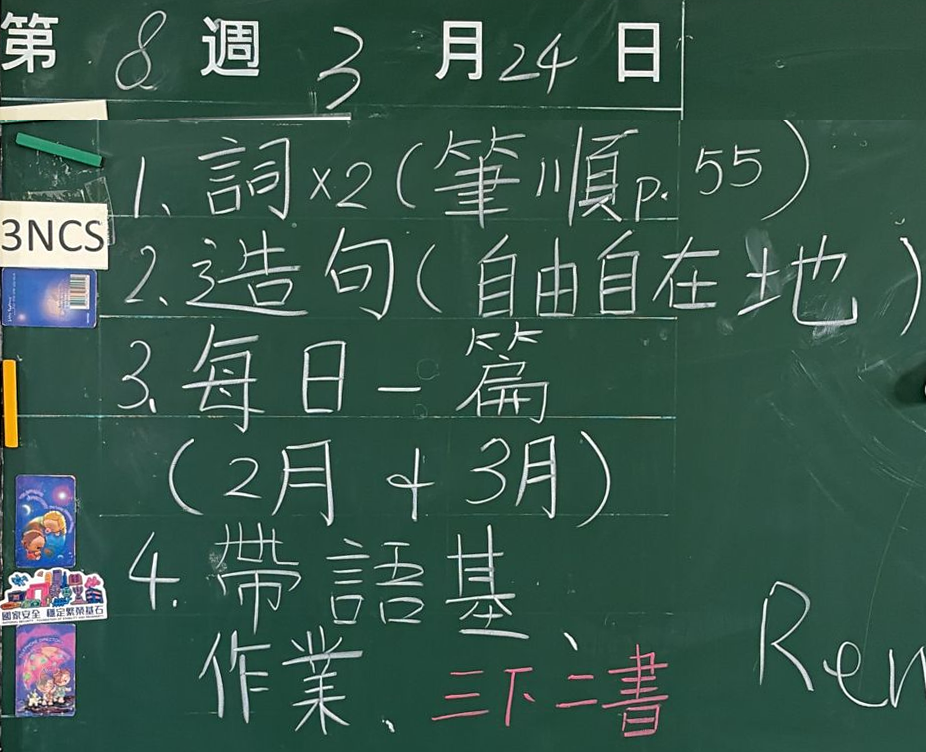 第 8 週 3 月 24 日
1. 詞×2(筆順p.55)
3NCS
2. 造句(自由自在地)
3. 每日一篇
(2月 + 3月)
4. 帶語基、
國家安全 穩定繁榮基石
作業、三下二書
Ren